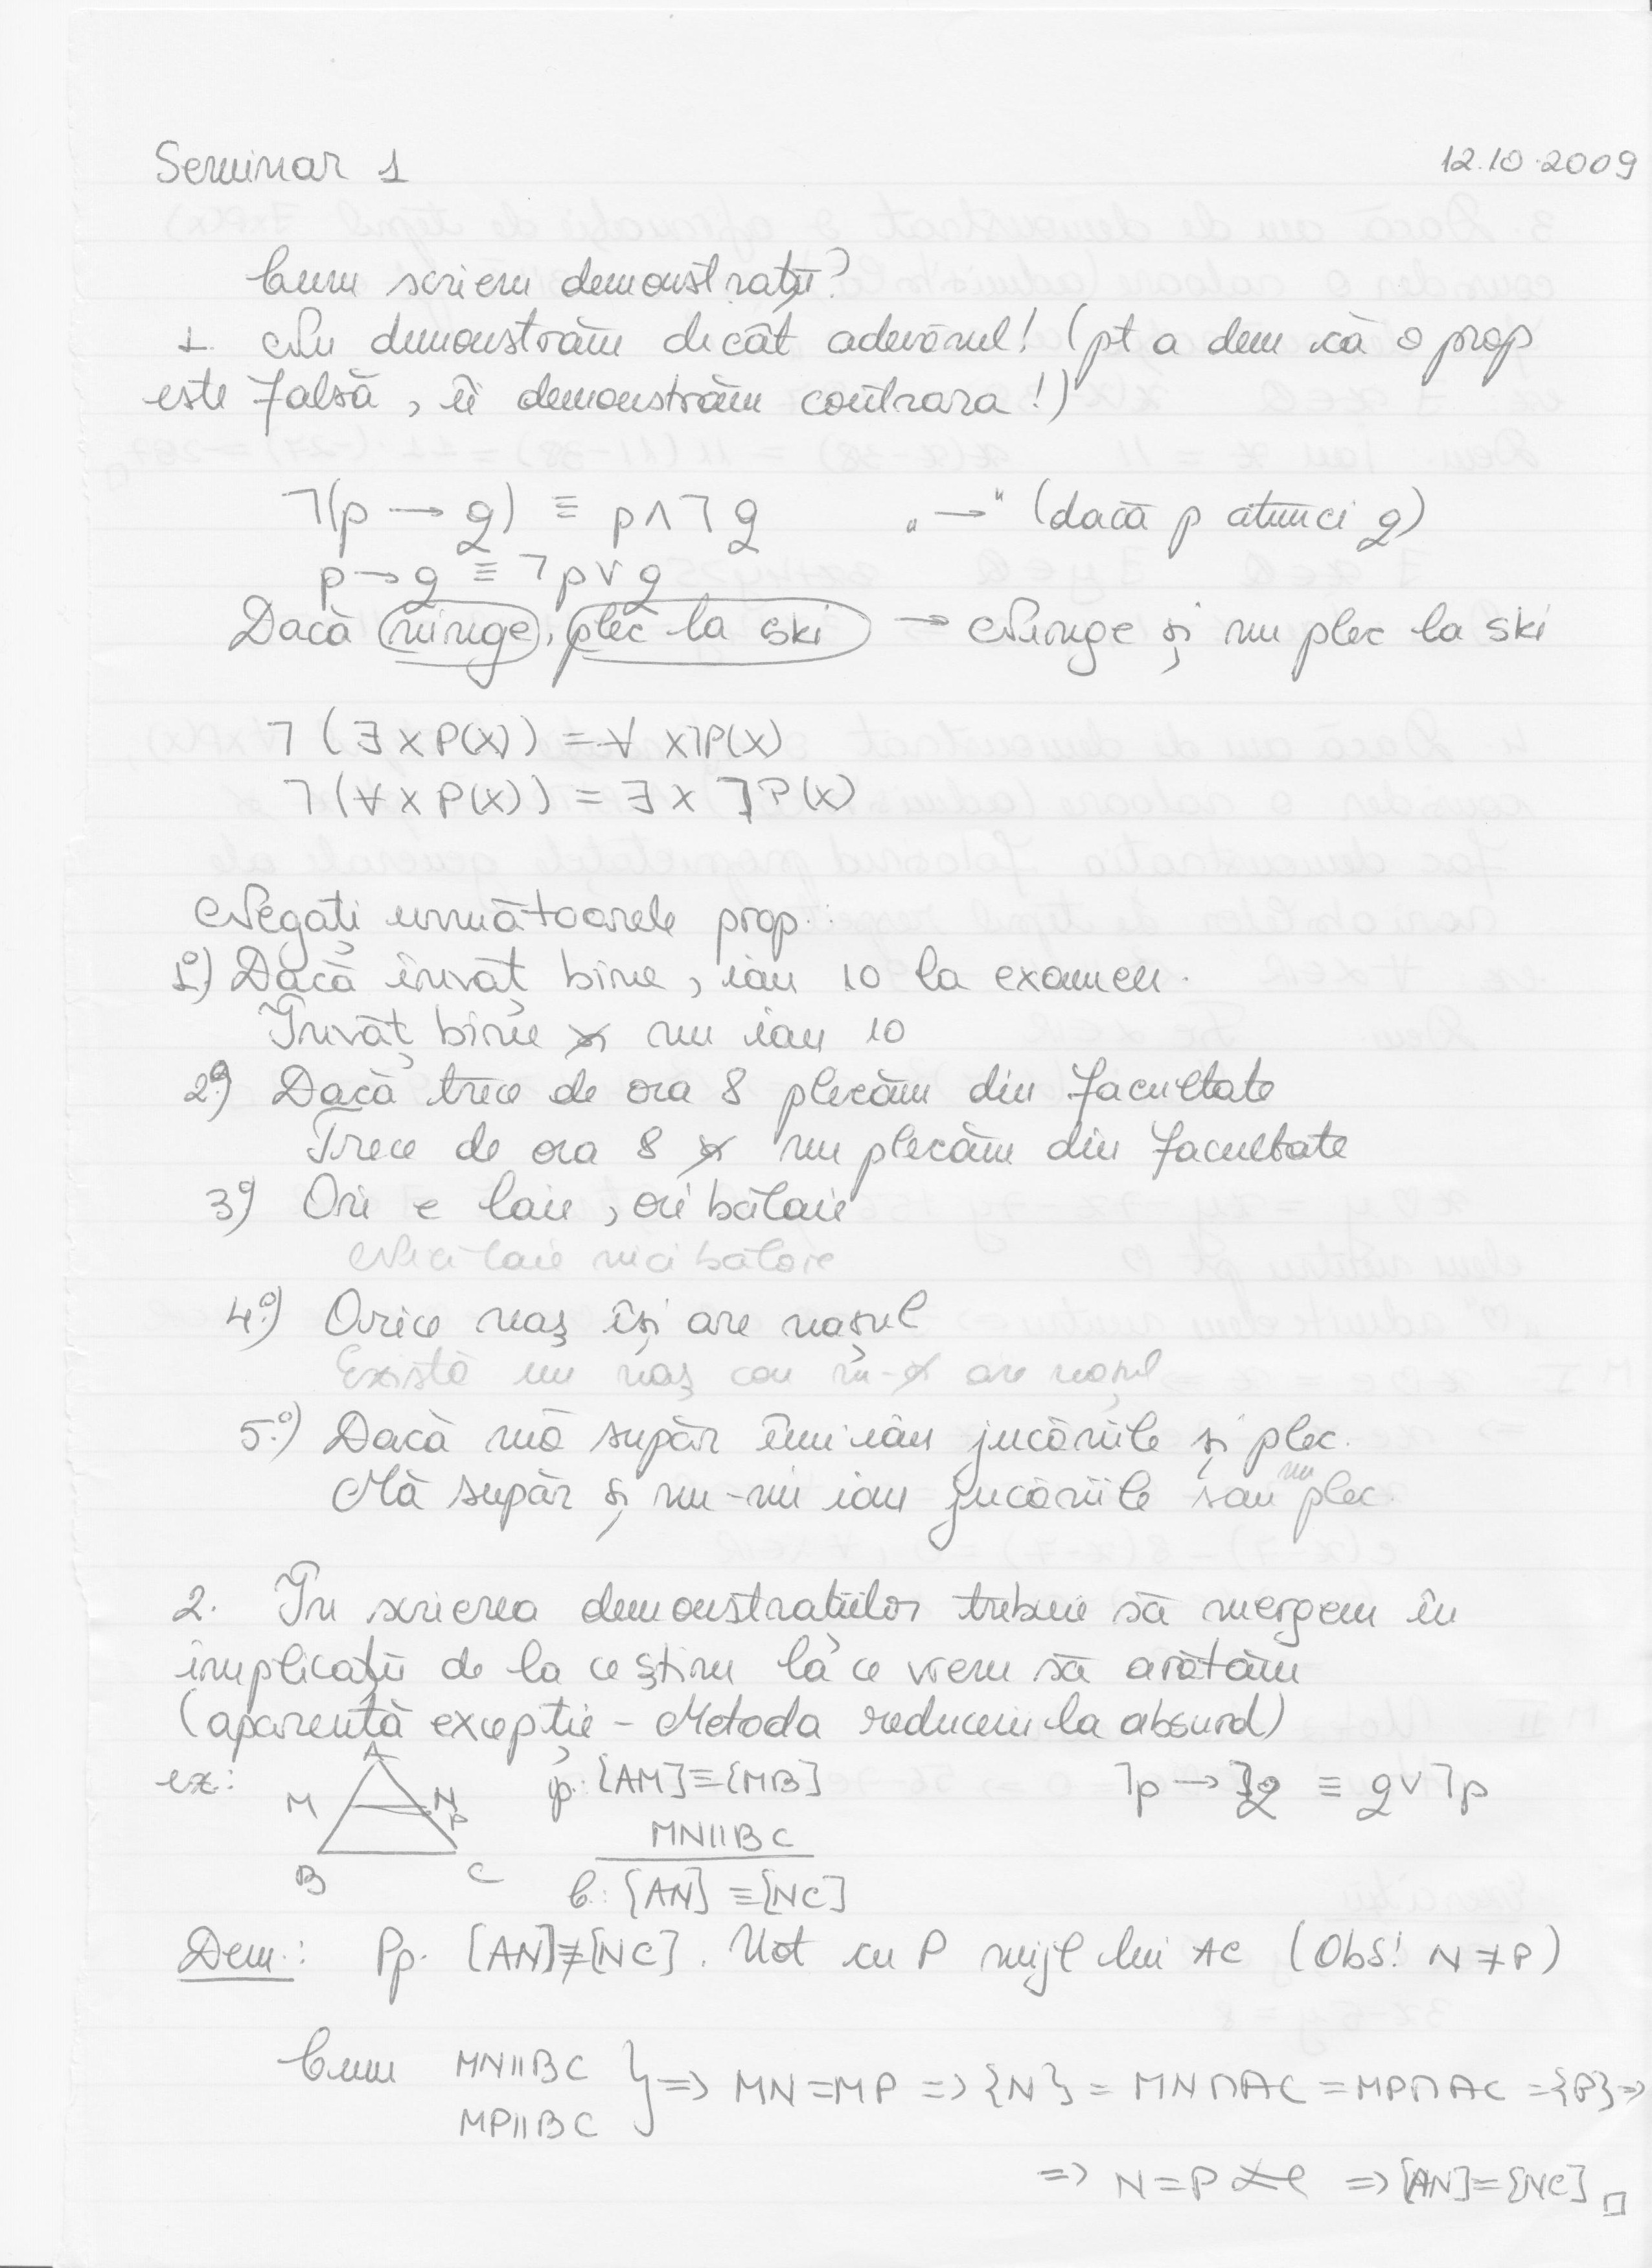 Seminar 1
12.10.2009
Cum scriem demonstrații?
1. Nu demonstrăm decât adevărul! (pt a dem că o prop
este falsă, îi demonstrăm contrara!)
ㄱ(p → q) ≡ p ∧ ㄱ q „→" (dacă p atunci q)
p → q ≡ ㄱp ∨ q
Dacă ninge, plec la ski → Ninge și nu plec la ski
ㄱ (∃ x P(x)) = ∀ xㄱP(x)
ㄱ (∀ x P(x)) = ∃ x ㄱP(x)
Negați următoarele prop.:
1°) Dacă învăț bine, iau 10 la examen.
Învăț bine și nu iau 10
2°) Dacă trece de ora 8 plecăm din facultate
Trece de ora 8 și nu plecăm din facultate
3°) Ori e laie, ori bălaie
Nici laie nici bălaie
4°) Orice naș își are nașul
Există un naș care nu-și are nașul
5°) Dacă mă supăr îmi iau jucăriile și plec.
Mă supăr și nu-mi iau jucăriile sau nu plec.
2. În scrierea demonstrațiilor trebuie să mergem în
implicații de la ce știm la ce vrem să arătăm
(aparentă excepție - Metoda reducerii la absurd)
ex.: A M N P B C
ip: [AM]≡[MB]
MN||BC
C.: [AN] ≡ [NC]
ㄱp → ㄱq ≡ q ∨ ㄱp
Dem.: Pp. [AN]≢[NC]. Not cu P mijl lui AC (Obs! N ≠ P)
Cum MN||BC
MP||BC } => MN = MP => {N} = MN ∩ AC = MP ∩ AC = {P} =>
=> N = P => [AN] = [NC] □